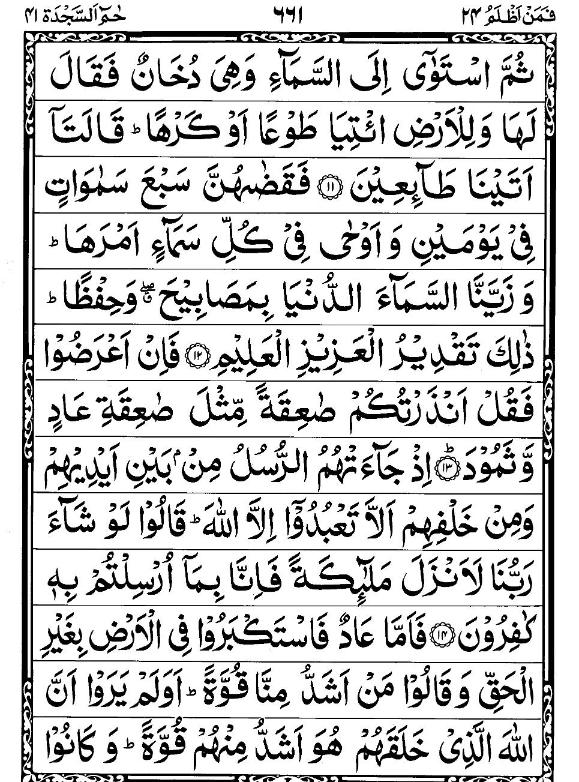 فَمَنْ اَظْلَمُ ۲۴ ۶۶۱ حٰمٓ اَلسَّجْدَة ۴۱
ثُمَّ اسْتَوٰۤی اِلَی السَّمَآءِ وَهِیَ دُخَانٌ فَقَالَ
لَهَا وَلِلْاَرْضِ ائْتِیَا طَوْعًا اَوْ كَرْهًا ؕ قَالَتَاۤ
اَتَیْنَا طَآىِٕعِیْنَ ۝۱۱ فَقَضٰىهُنَّ سَبْعَ سَمٰوَاتٍ
فِیْ یَوْمَیْنِ وَ اَوْحٰی فِیْ كُلِّ سَمَآءٍ اَمْرَهَا ؕ
وَ زَیَّنَّا السَّمَآءَ الدُّنْیَا بِمَصَابِیْحَ ۖۗ وَحِفْظًا ؕ
ذٰلِكَ تَقْدِیْرُ الْعَزِیْزِ الْعَلِیْمِ ۝۱۲ فَاِنْ اَعْرَضُوْا
فَقُلْ اَنْذَرْتُكُمْ صٰعِقَةً مِّثْلَ صٰعِقَةِ عَادٍ
وَّ ثَمُوْدَ ۝۱۳ؕ اِذْ جَآءَتْهُمُ الرُّسُلُ مِنْۢ بَیْنِ اَیْدِیْهِمْ
وَمِنْ خَلْفِهِمْ اَلَّا تَعْبُدُوْۤا اِلَّا اللّٰهَ ؕ قَالُوْا لَوْ شَآءَ
رَبُّنَا لَاَنْزَلَ مَلٰٓىِٕكَةً فَاِنَّا بِمَاۤ اُرْسِلْتُمْ بِهٖ
كٰفِرُوْنَ ۝۱۴ فَاَمَّا عَادٌ فَاسْتَكْبَرُوْا فِی الْاَرْضِ بِغَیْرِ
الْحَقِّ وَ قَالُوْا مَنْ اَشَدُّ مِنَّا قُوَّةً ؕ اَوَلَمْ یَرَوْا اَنَّ
اللّٰهَ الَّذِیْ خَلَقَهُمْ هُوَ اَشَدُّ مِنْهُمْ قُوَّةً ؕ وَ كَانُوْا